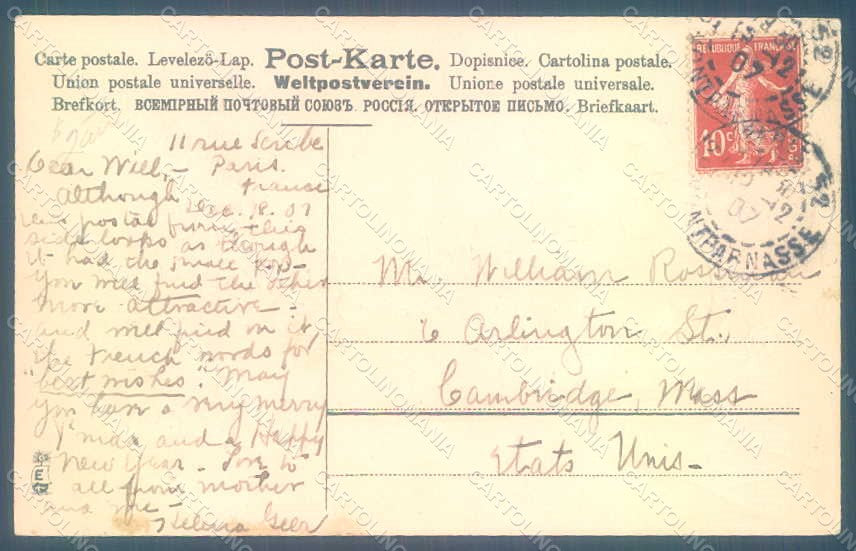 Carte postale. Levelező-Lap. Post-Karte. Dopisnice. Cartolina postale.
Union postale universelle. Weltpostverein. Unione postale universale.
Brefkort. ВСЕМІРНЫЙ ПОЧТОВЫЙ СОЮЗЪ. РОССІЯ. ОТКРЫТОЕ ПИСЬМО. Briefkaart.
REPUBLIQUE FRANÇAISE
10c
07
12
52
MONTPARNASSE
11 rue Scribe
Paris.
France
Dec. 18. 07
Dear Will -
Although
postal from this
side looks as though
it had the small pox -
You will find the other
more attractive -
and will find on it
the French words for
"best wishes". May
you have a very merry
X'mas and a Happy
New Year - Love to
all from mother
and me -
Helena Geer
Mr. William
6 Arlington St.,
Cambridge, Mass
Etats Unis -
CARTOLINOMANIA